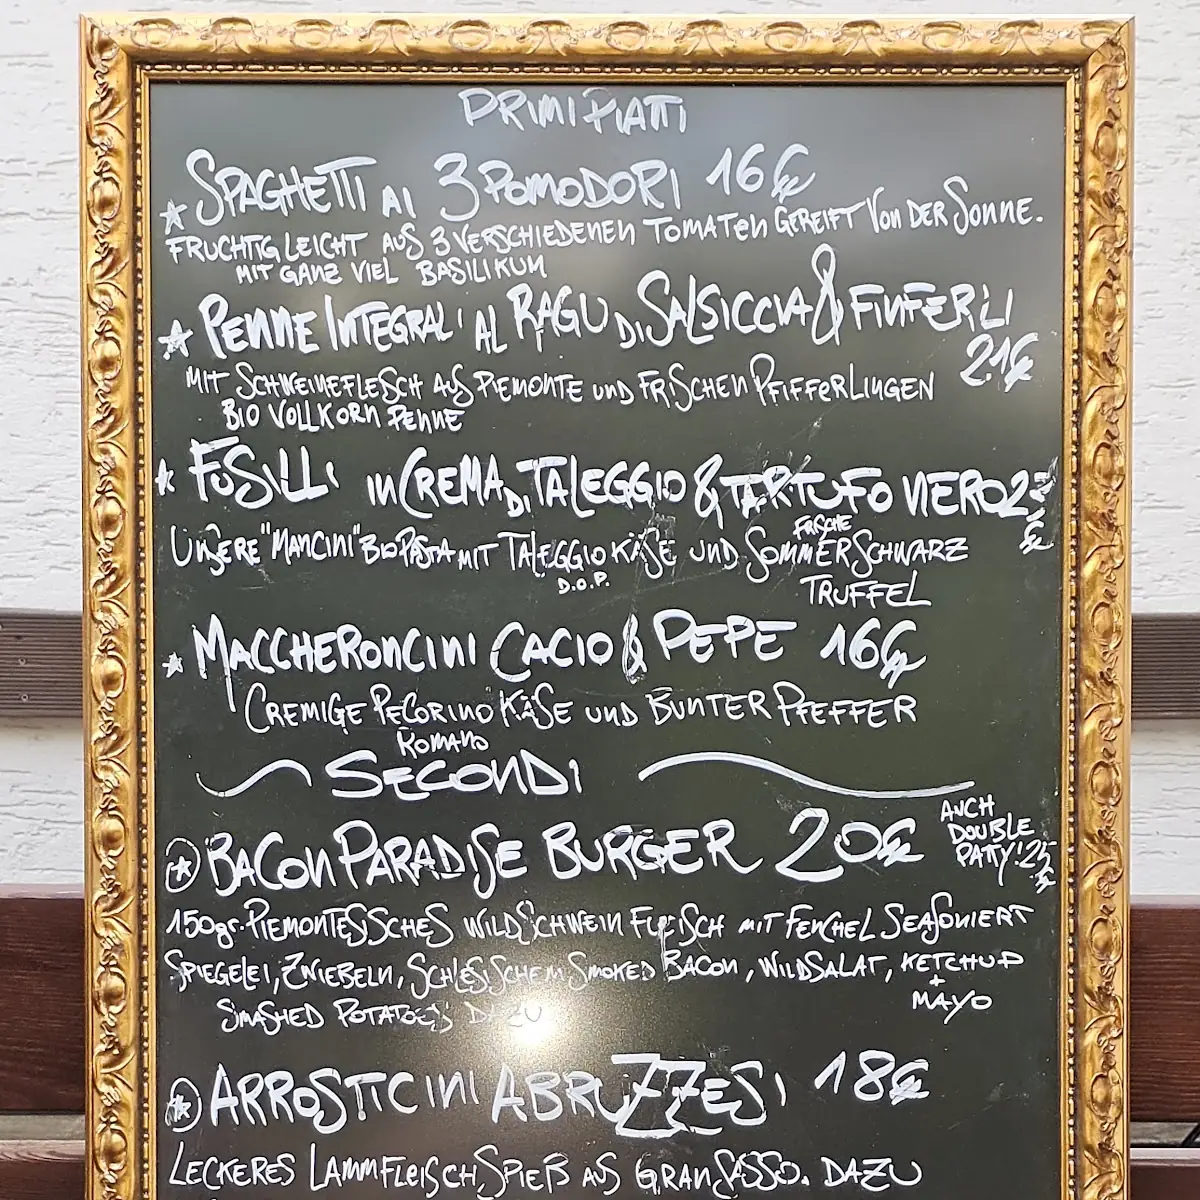 PRIMI PIATTI
SPAGHETTI AI 3 POMODORI 16€
FRUCHTIG LEICHT AUS 3 VERSCHIEDENEN TOMATEN GEREIFT VON DER SONNE.
MIT GANZ VIEL BASILIKUM
PENNE INTEGRALI AL RAGU DI SALSICCIA & FINFERLI
21€
MIT SCHWEINEFLEISCH AUS PIEMONTE UND FRISCHEN PFIFFERLINGEN
BIO VOLLKORN PENNE
FUSILLI IN CREMA DI TALEGGIO & TARTUFO NERO
UNSERE "MANCINI" BIO PASTA MIT TALEGGIO KÄSE UND FRISCHE SOMMERSCHWARZ
D.O.P.
TRUFFEL
MACCHERONCINI CACIO & PEPE 16€
CREMIGE PECORINO KÄSE UND BUNTER PFEFFER
ROMANO
SECONDI
BACON PARADISE BURGER 20€
AUCH
DOUBLE
PATTY! 25€
150gr. PIEMONTESISCHES WILDSCHWEIN FLEISCH MIT FENCHEL SEASONIERT
SPIEGELEI, ZWIEBELN, SCHLESISCHEM SMOKED BACON, WILDSALAT, KETCHUP
+
MAYO
SMASHED POTATOES DAZU
ARROSTICINI ABRUZZESI 18€
LECKERES LAMMFLEISCHSPIEß AUS GRAN SASSO. DAZU